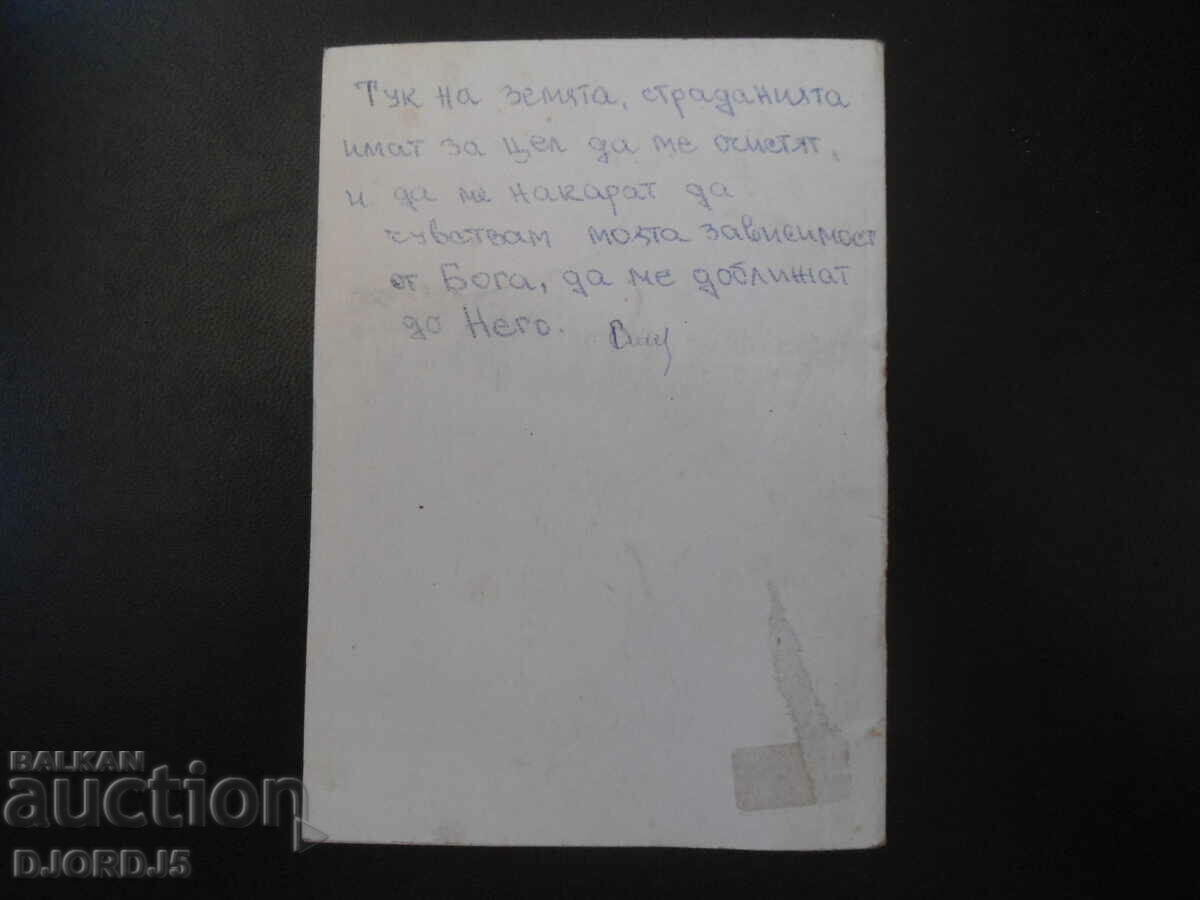 Тук на земята, страданията
имат за цел да ме очистят,
и да ме накарат да
чувствам моята зависимост
от Бога, да ме доближат
до Него.
BALKAN
auction
DJORD_J5